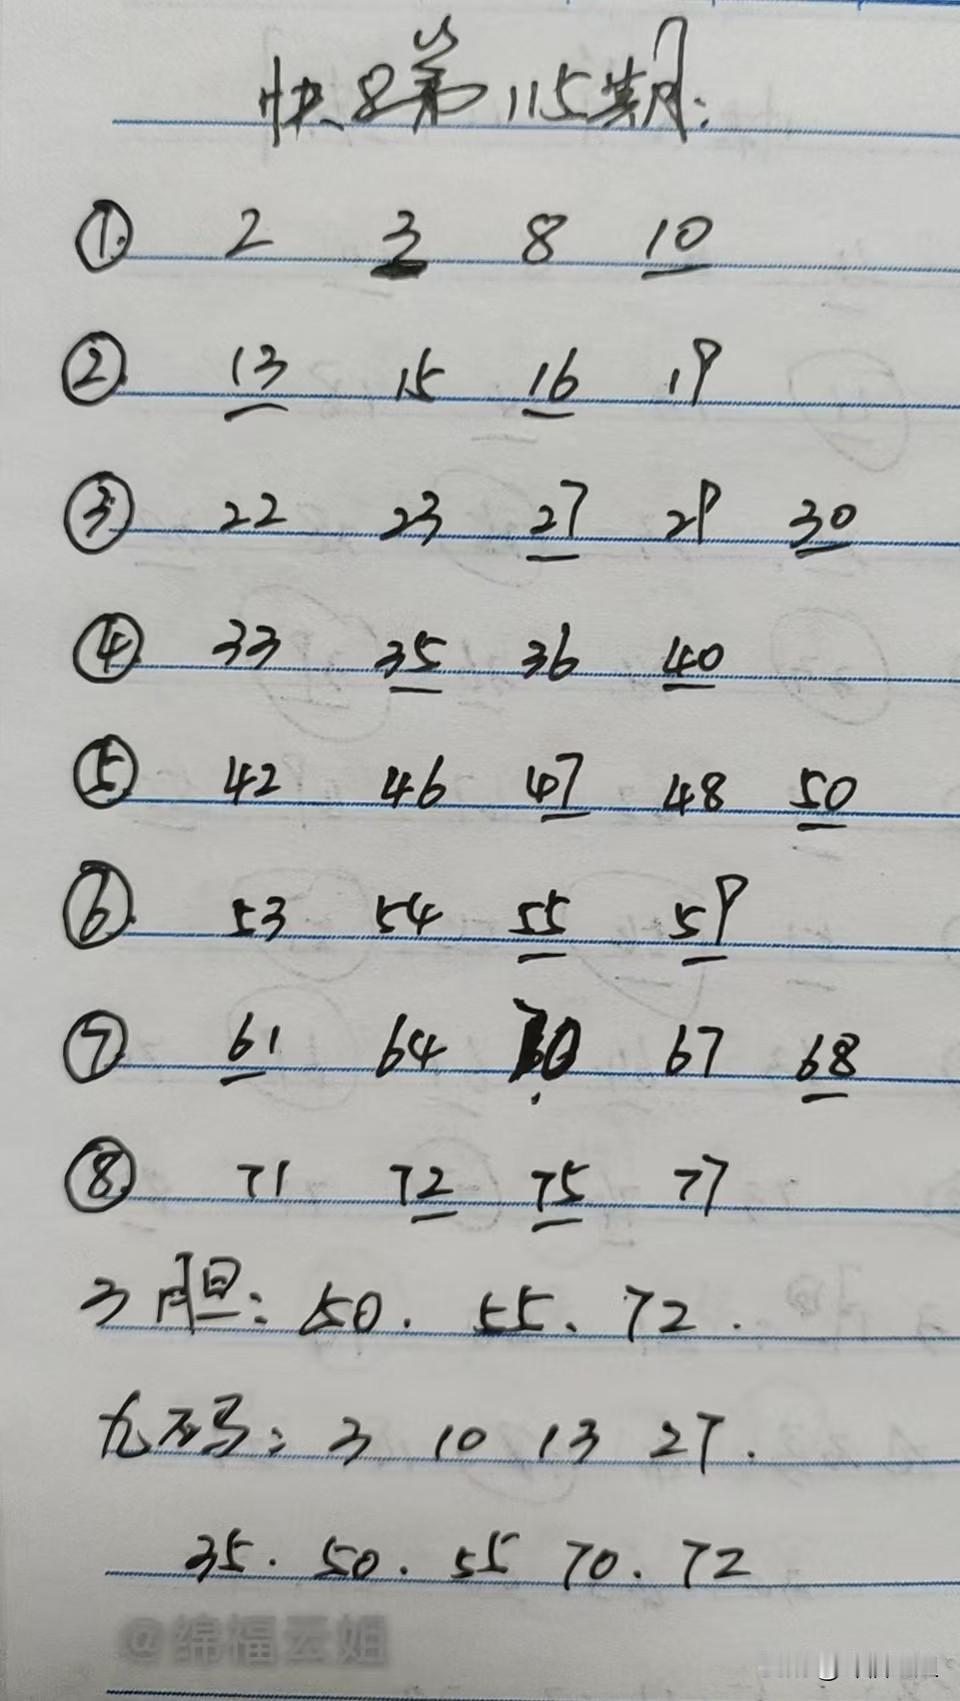 快8第115期:
① 2 3 8 10
② 13 15 16 19
③ 22 23 27 29 30
④ 33 35 36 40
⑤ 42 46 47 48 50
⑥ 53 54 55 59
⑦ 61 64 70 67 68
⑧ 71 72 75 77
3胆: 50. 55. 72.
九不马: 3 10 13 27.
35. 50. 55 70. 72
@绵福云姐